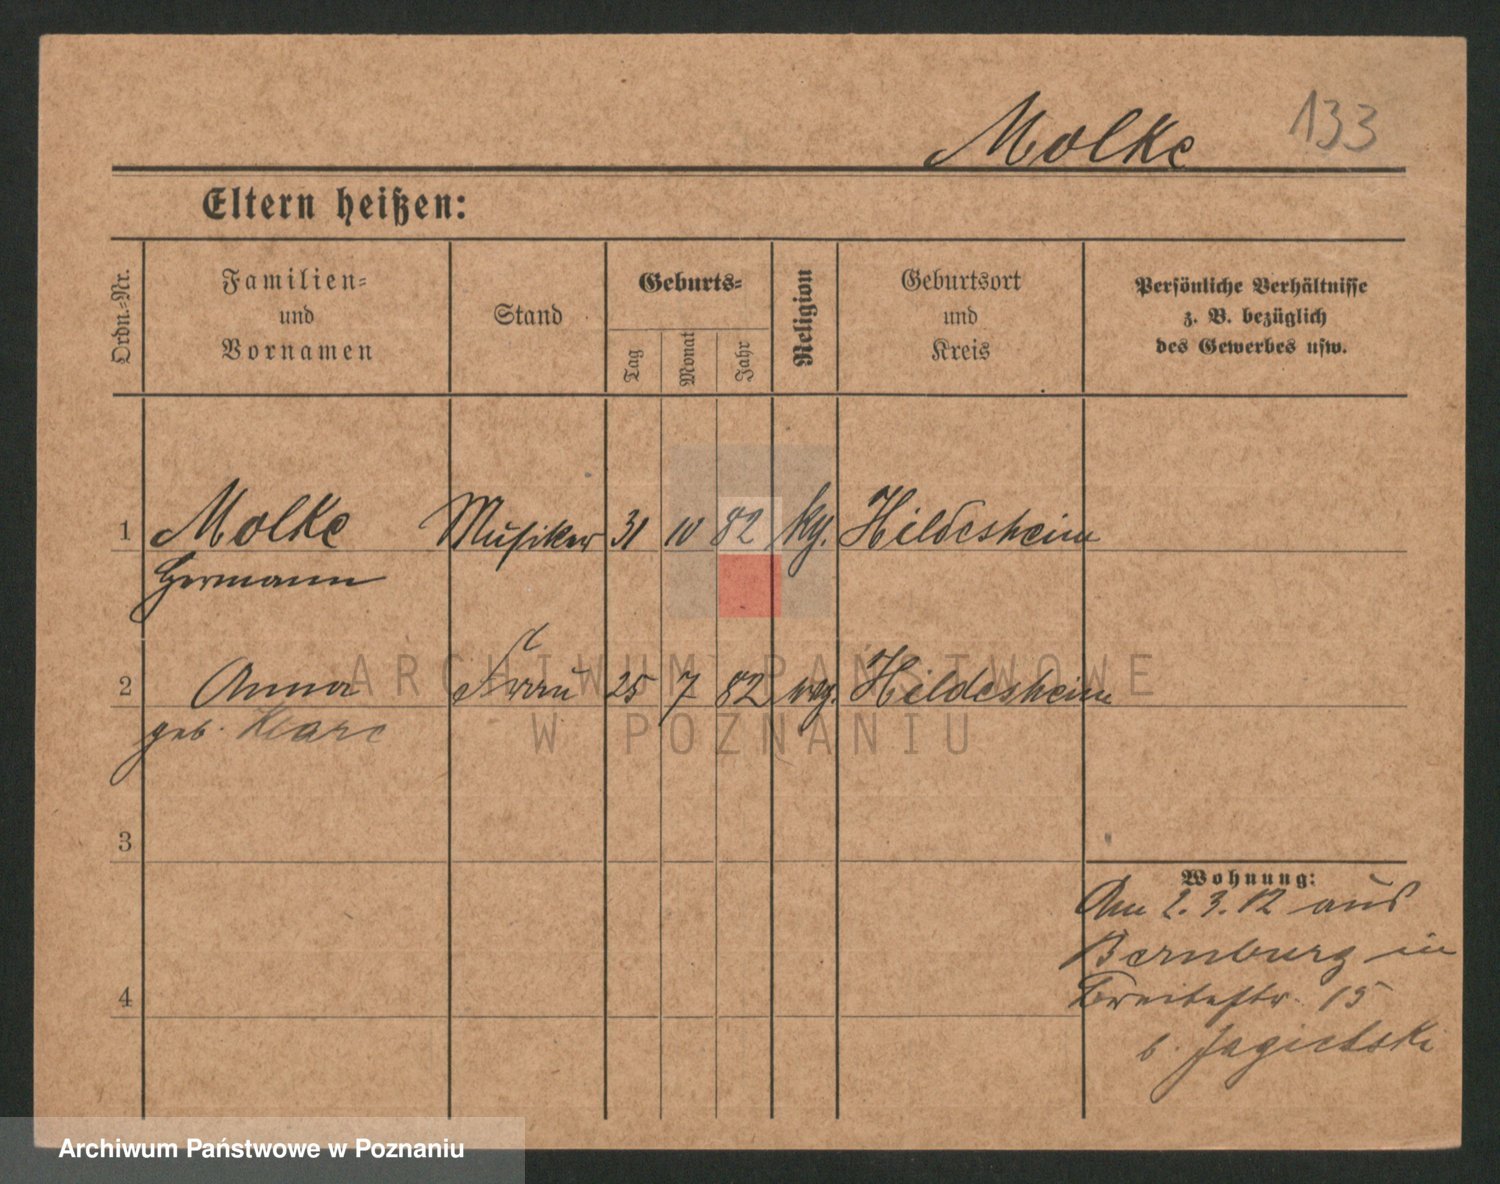 Molke 133
Eltern heißen:
Ordn.-Nr.
Familien-
und
Vornamen
Stand
Geburts-
Tag
Monat
Jahr
Religion
Geburtsort
und
Kreis
Persönliche Verhältnisse
z. B. bezüglich
des Gewerbes usw.
1 Molke Musiker 31 10 82 Hildesheim
Hermann
2 Anna Frau 25 7 82 Hildesheim
geb.
3
4
Wohnung:
Am 2. 3. 12 aus
Bernburg in
Breitestr. 15
b. Jagielski
ARCHIWUM PAŃSTWOWE
W POZNANIU
Archiwum Państwowe w Poznaniu